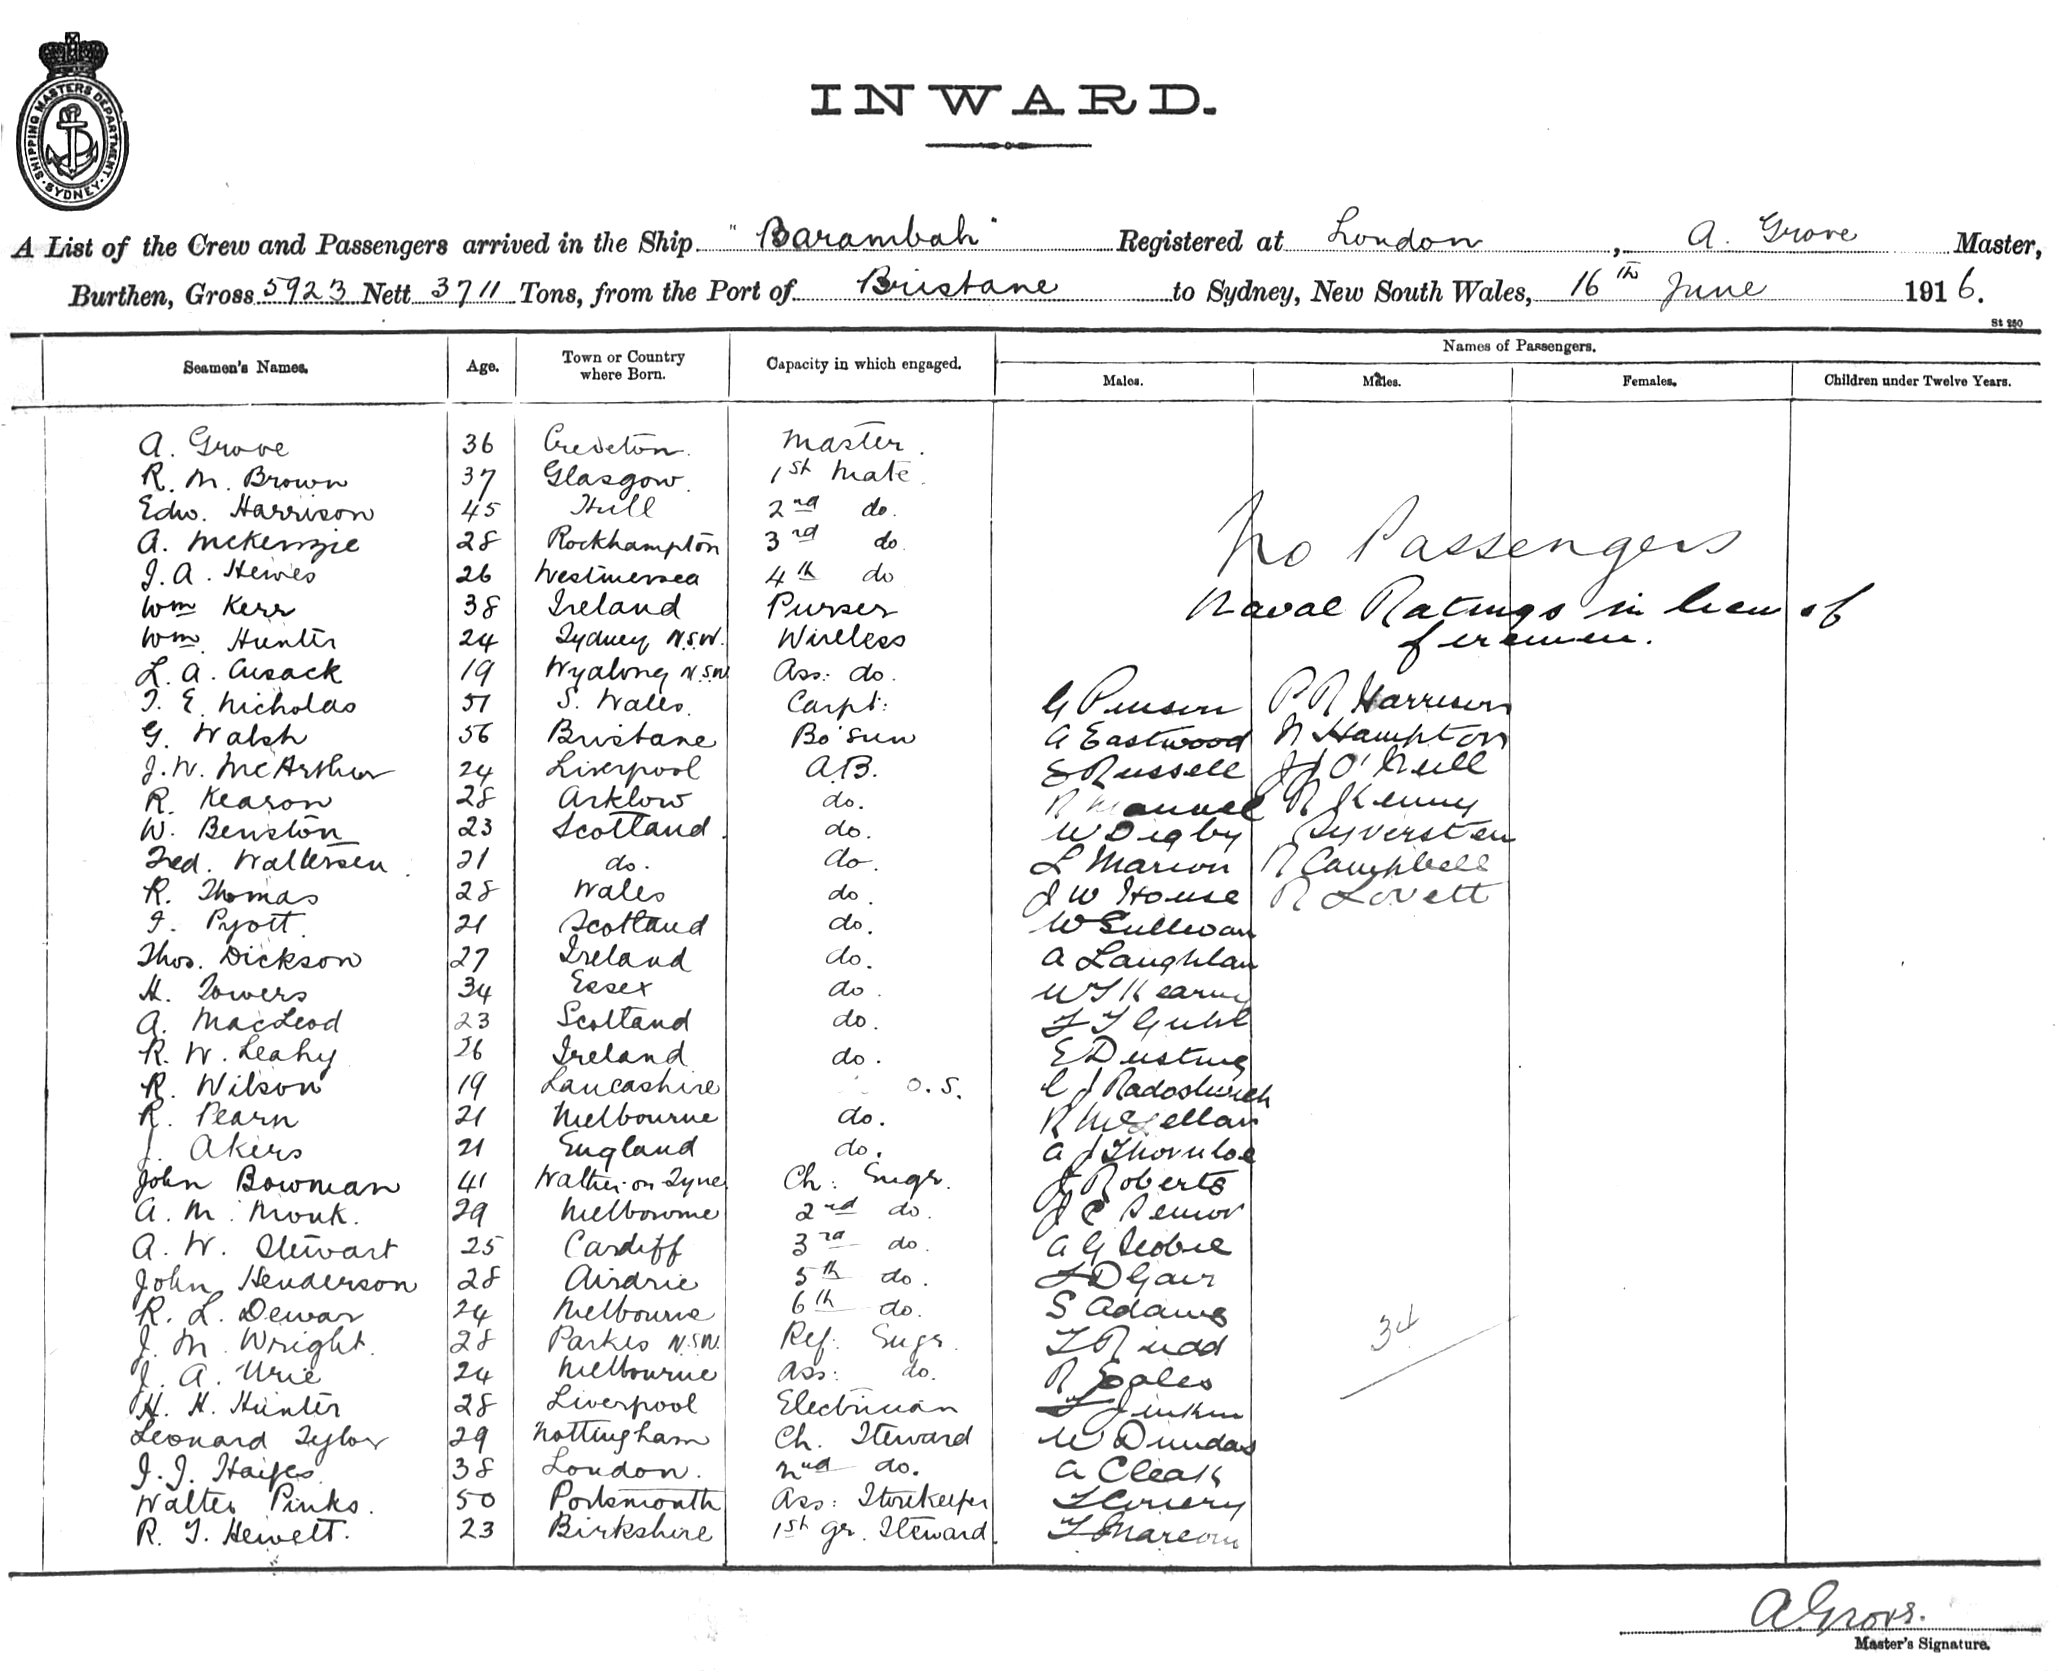 SHIPPING MASTERS DEPARTMENT SYDNEY
INWARD.
A List of the Crew and Passengers arrived in the Ship "Barambah" Registered at London, A. Grove Master,
Burthen, Gross 5923 Nett 3711 Tons, from the Port of Brisbane to Sydney, New South Wales, 16th June 1916.
St 250
Seamen's Names. Age. Town or Country where Born. Capacity in which engaged. Names of Passengers.
Males. Males. Females. Children under Twelve Years.
A. Grove 36 Master.
R. M. Brown 37 Glasgow. 1st Mate
Edw. Harrison 45 Hull 2nd do.
No Passengers
A. McKenzie 28 Rockhampton 3rd do
J. A. Hewes 26 Westmersea 4th do
Wm Kerr 38 Ireland Purser Naval Ratings in lieu of
firemen.
Wm. Hunter 24 Sydney N.S.W. Wireless
L. A. Cusack 19 Wyalong N.S.W Ass: do.
T. E. Nicholas 51 S. Wales. Carpt: G P R Harrison
G. Walsh 56 Brisbane Bo'sun A Eastwood N Hampton
J. W. McArthur 24 Liverpool A.B. E Russell J J O'Neill
R. Kearon 28 Arklow do. R Kenny
W. Benston 23 Scotland. do. W Digby Syversten
Fred. Waltersen 21 do. do. L Marion R Campbell
R. Thomas 28 Wales do. J W House R Lovett
Pyott 21 Scotland do. W Sullivan
Thos. Dickson 27 Ireland do. A Laughlan
H. Towers 34 Essex do. W T Kearny
A. MacLeod 23 Scotland do.
R. W. Leahy 26 Ireland do. E Dusting
R. Wilson 19 Lancashire O.S. C J
R. Pearn 21 Melbourne do. R McLellan
J. Akers 21 England do. A J Thornloe
John Bowman 41 Ch: Engr. J Roberts
A. M. Monk. 29 Melbourne 2nd do. J C Senior
A. W. Stewart 25 Cardiff 3rd do. A G
John Henderson 28 Airdrie 5th do. Gair
R. L. Dewar 24 Melbourne 6th do. S Adams
J. M. Wright. 28 Parkes N.S.W. Ref. Engr. Rudd 34
J. A. Urie 24 Melbourne Ass: do. R Eales
H. H. Hunter 28 Liverpool Electrician
Leonard Tylor 29 Nottingham Ch. Steward W Dundas
J. J. 38 London. 2nd do. A
Walter Pinks. 50 Portsmouth Ass: Storekeeper
R. T. Hewett. 23 Birkshire 1st gr. Steward.
A. Grove.
Master's Signature.